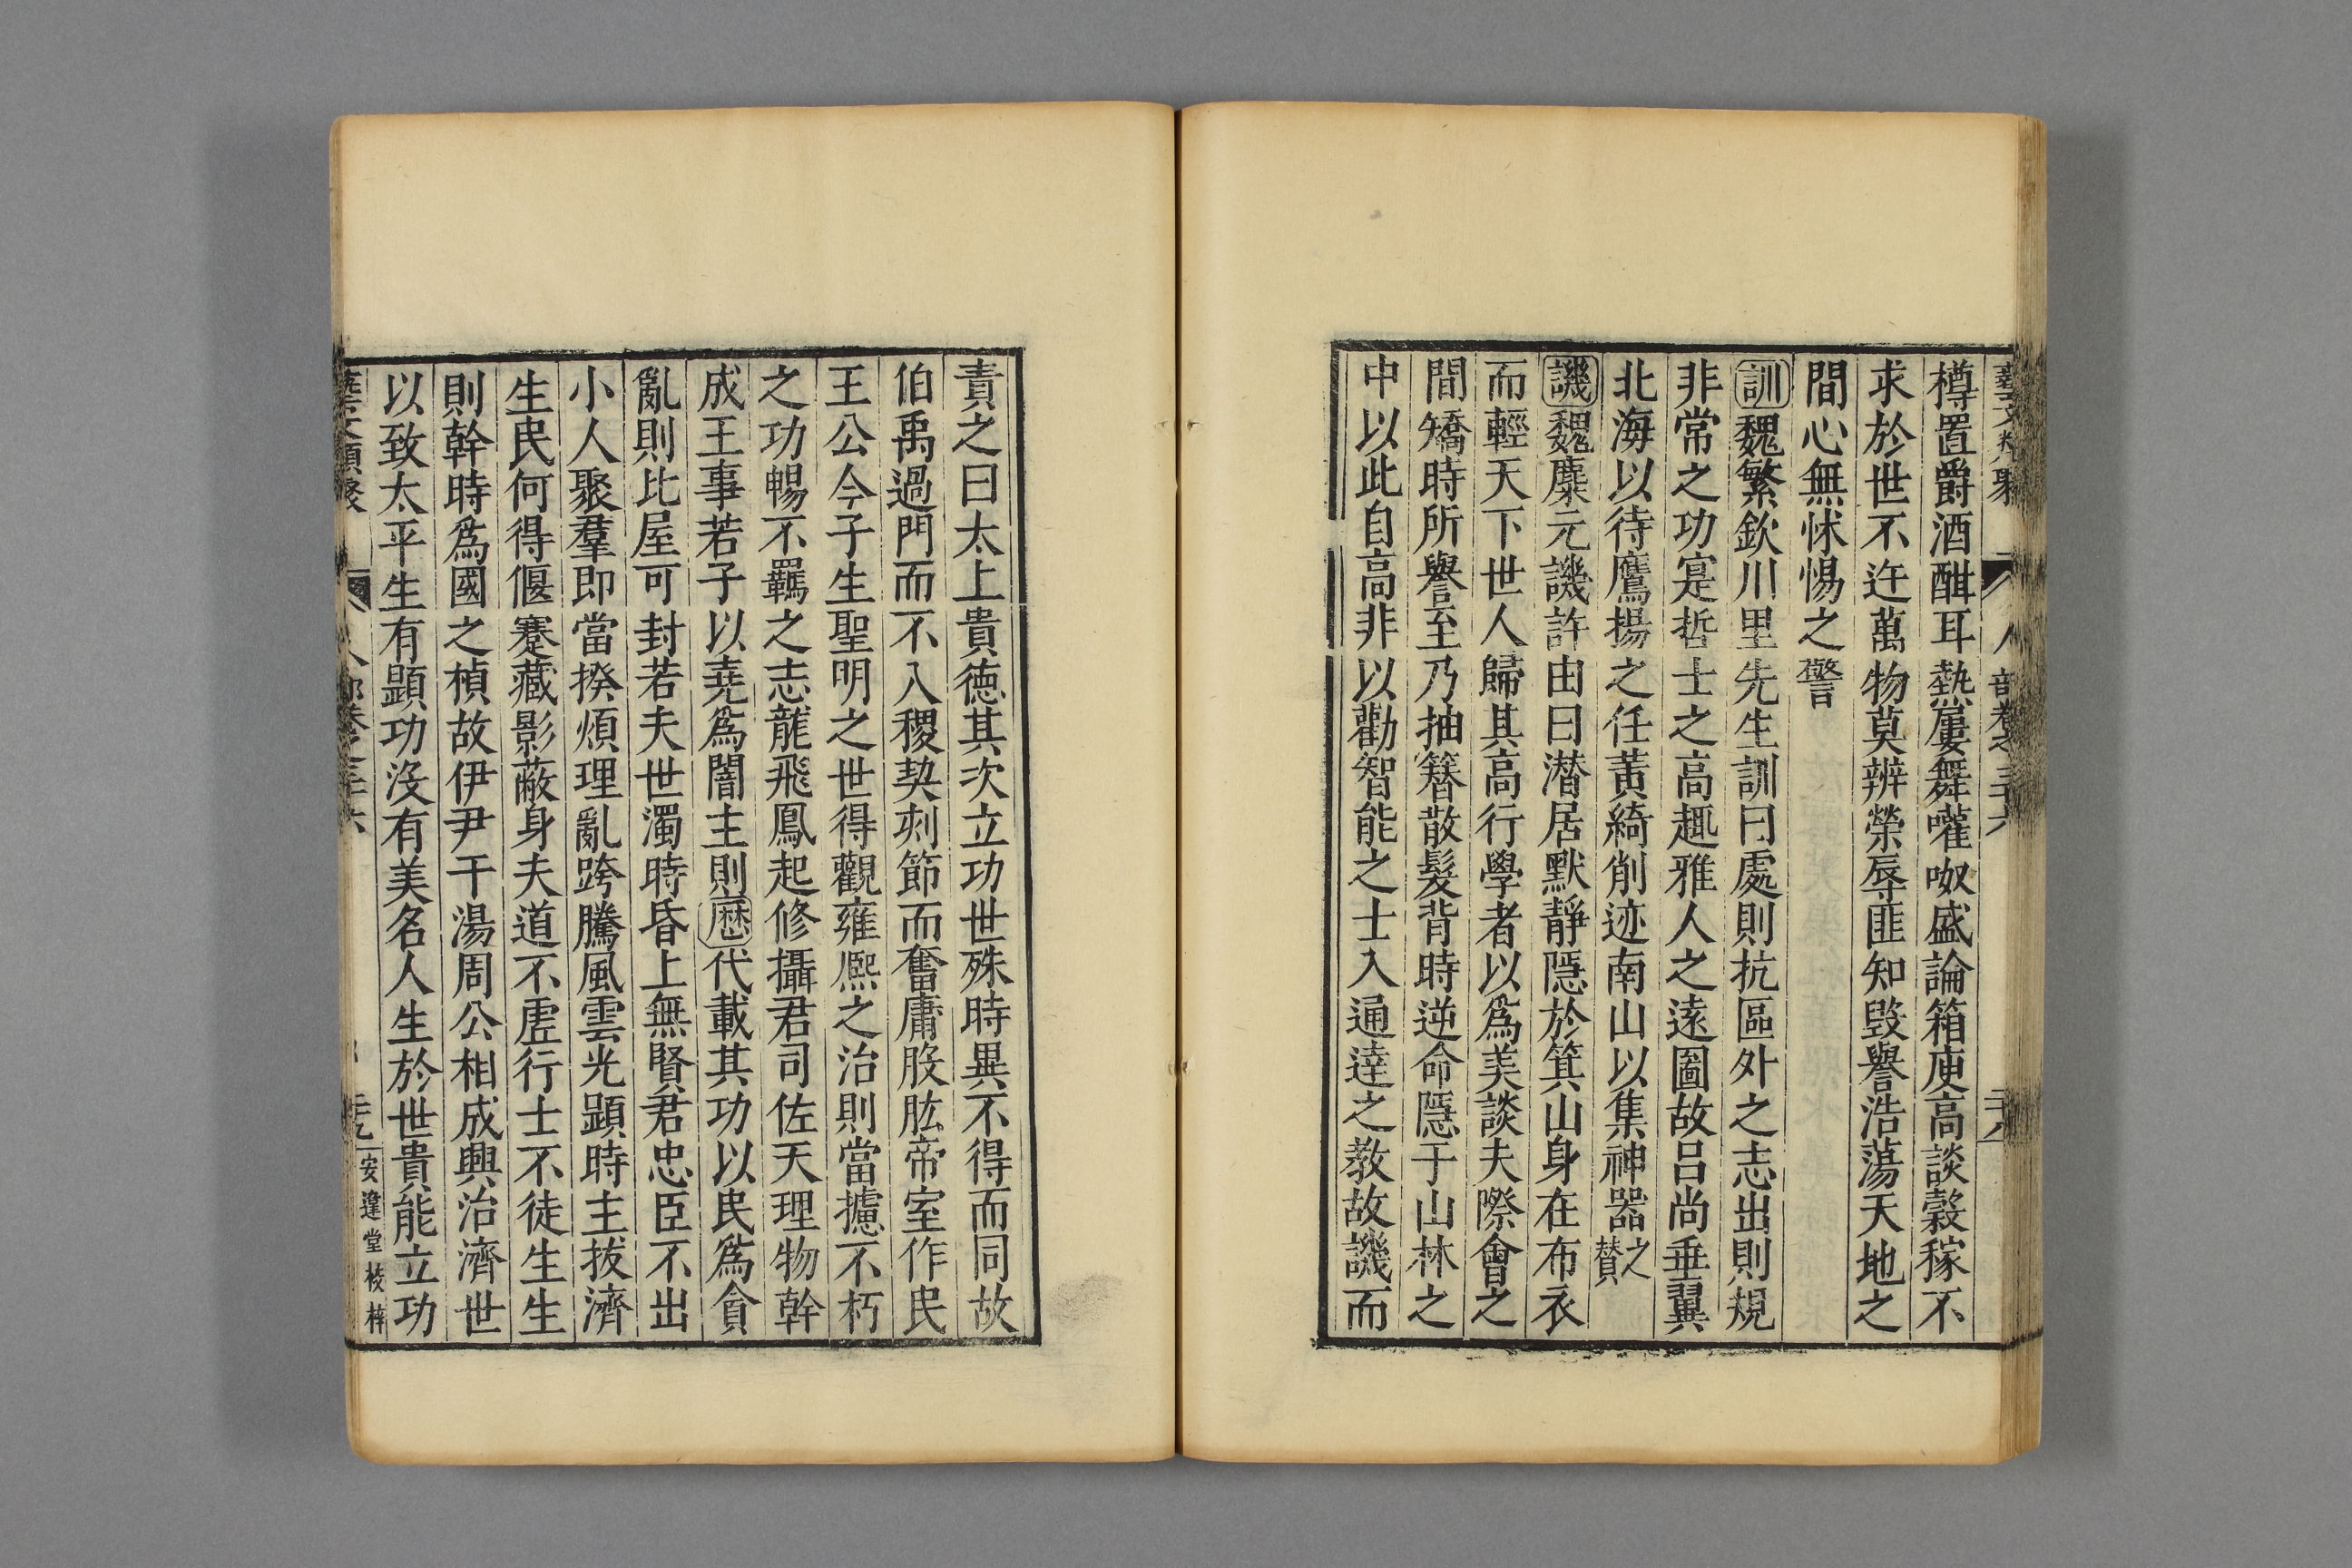 藝文類聚 人部卷之三十六 二十八
樽置爵酒酣耳熱屢舞嚾呶盛論箱庾高談穀稼不
求於世不迕萬物莫辨榮辱匪知毀譽浩蕩天地之
間心無怵惕之警
訓魏繁欽川里先生訓曰處則抗區外之志出則規
非常之功寔哲士之高趣雅人之遠圖故呂尚垂翼
北海以待鷹揚之任黃綺削迹南山以集神器之贊
譏魏麋元譏許由曰潛居默靜隱於箕山身在布衣
而輕天下世人歸其高行學者以爲美談夫際會之
間矯時所譽至乃抽簪散髮背時逆命隱于山林之
中以此自高非以勸智能之士入通達之教故譏而
責之曰太上貴德其次立功世殊時異不得而同故
伯禹過門而不入稷契刺節而奮庸股肱帝室作民
王公今子生聖明之世得觀雍熙之治則當攄不朽
之功暢不羈之志龍飛鳳起修攝君司佐天理物幹
成王事若子以堯爲闇主則歷代載其功以民爲貪
亂則比屋可封若夫世濁時昏上無賢君忠臣不出
小人聚羣即當揆煩理亂跨騰風雲光顯時主拔濟
生民何得偃蹇藏影蔽身夫道不虛行士不徒生生
則幹時爲國之楨故伊尹干湯周公相成興治濟世
以致太平生有顯功沒有美名人生於世貴能立功
藝文類聚 人部卷之三十六 二十九 安達堂校梓